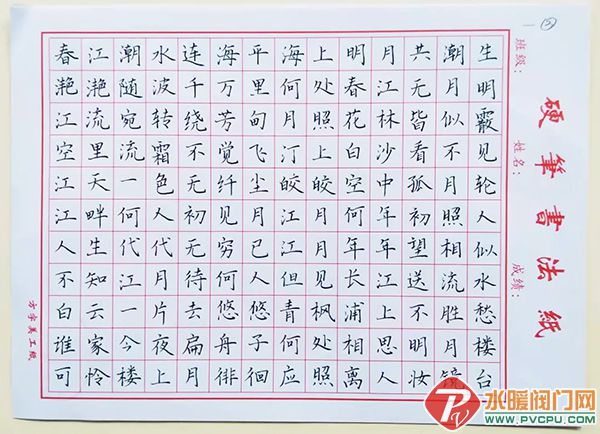 ⑤
春江潮水连海平海上明月共潮生
滟滟随波千万里何处春江无月明
江流宛转绕芳甸月照花林皆似霰
空里流霜不觉飞汀上白沙看不见
江天一色无纤尘皎皎空中孤月轮
江畔何人初见月江月何年初照人
人生代代无穷已江月年年望相似
不知江月待何人但见长江送流水
白云一片去悠悠青枫浦上不胜愁
谁家今夜扁舟子何处相思明月楼
可怜楼上月徘徊应照离人妆镜台
班级： 姓名： 成绩：
硬筆書法紙
方字美工纸
水暖阀门网
WWW.PVCPU.COM